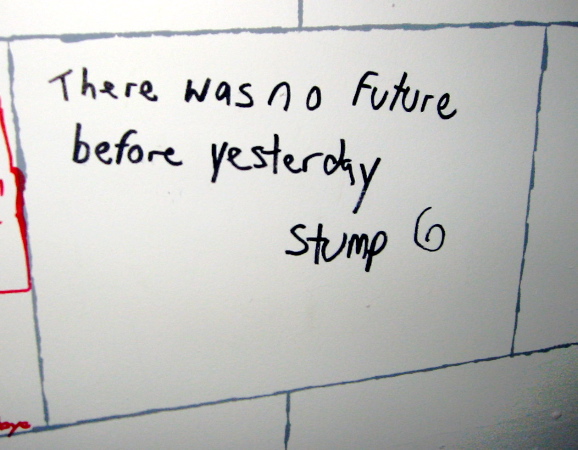 There was no Future
before yesterday
Stump